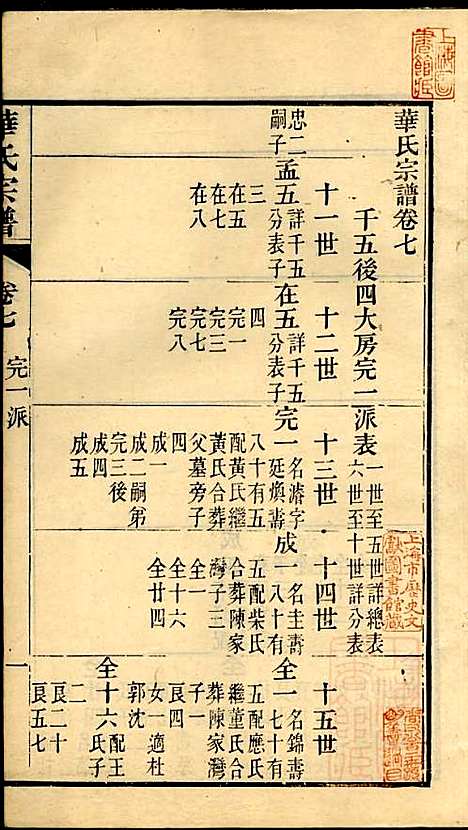 華氏宗譜卷七
千五後四大房完一派表 一世至五世詳總表 六世至十世詳分表
十一世
十二世
十三世
十四世
十五世
忠二嗣子
孟五 詳千五分表子
三
在五
在七
在八
在五 詳千五分表子
四
完一
完三
完七
完八
完一 名濬字廷煥壽
八十有五
配黃氏繼
黃氏合葬
父墓旁子
四
成一
成二嗣第
完三後
成四
成五
成一 名圭壽八十有
五配柴氏
合葬陳家
灣子三
全一
全十六
全廿四
全一 名錦壽七十有
五配應氏
繼董氏合
葬陳家灣
子一
艮四
女一適杜
郭沈
全十六 配王氏子
二
艮二十
艮五七
華氏宗譜
卷七
完一派
一
上海市歷史文獻圖書館藏